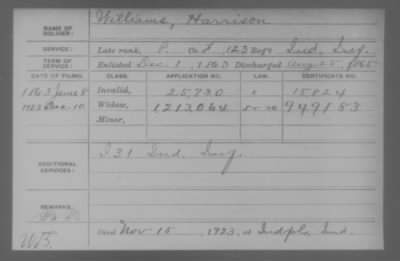 NAME OF SOLDIER: Williams, Harrison
SERVICE: Late rank, P. Co. F, 123 Reg't Ind. Inf.
TERM OF SERVICE: Enlisted Dec. 1, 1863 Discharged Aug 25, 1865
DATE OF FILING. CLASS. APPLICATION NO. LAW. CERTIFICATE NO.
1863 June 8 Invalid, 25,730 15824
1923 Dec. 10 Widow, 1213,064 949183
Minor,
ADDITIONAL SERVICES: I 31 Ind. Inf.
REMARKS:
Died Nov 15, 1923, at Indpls, Ind.